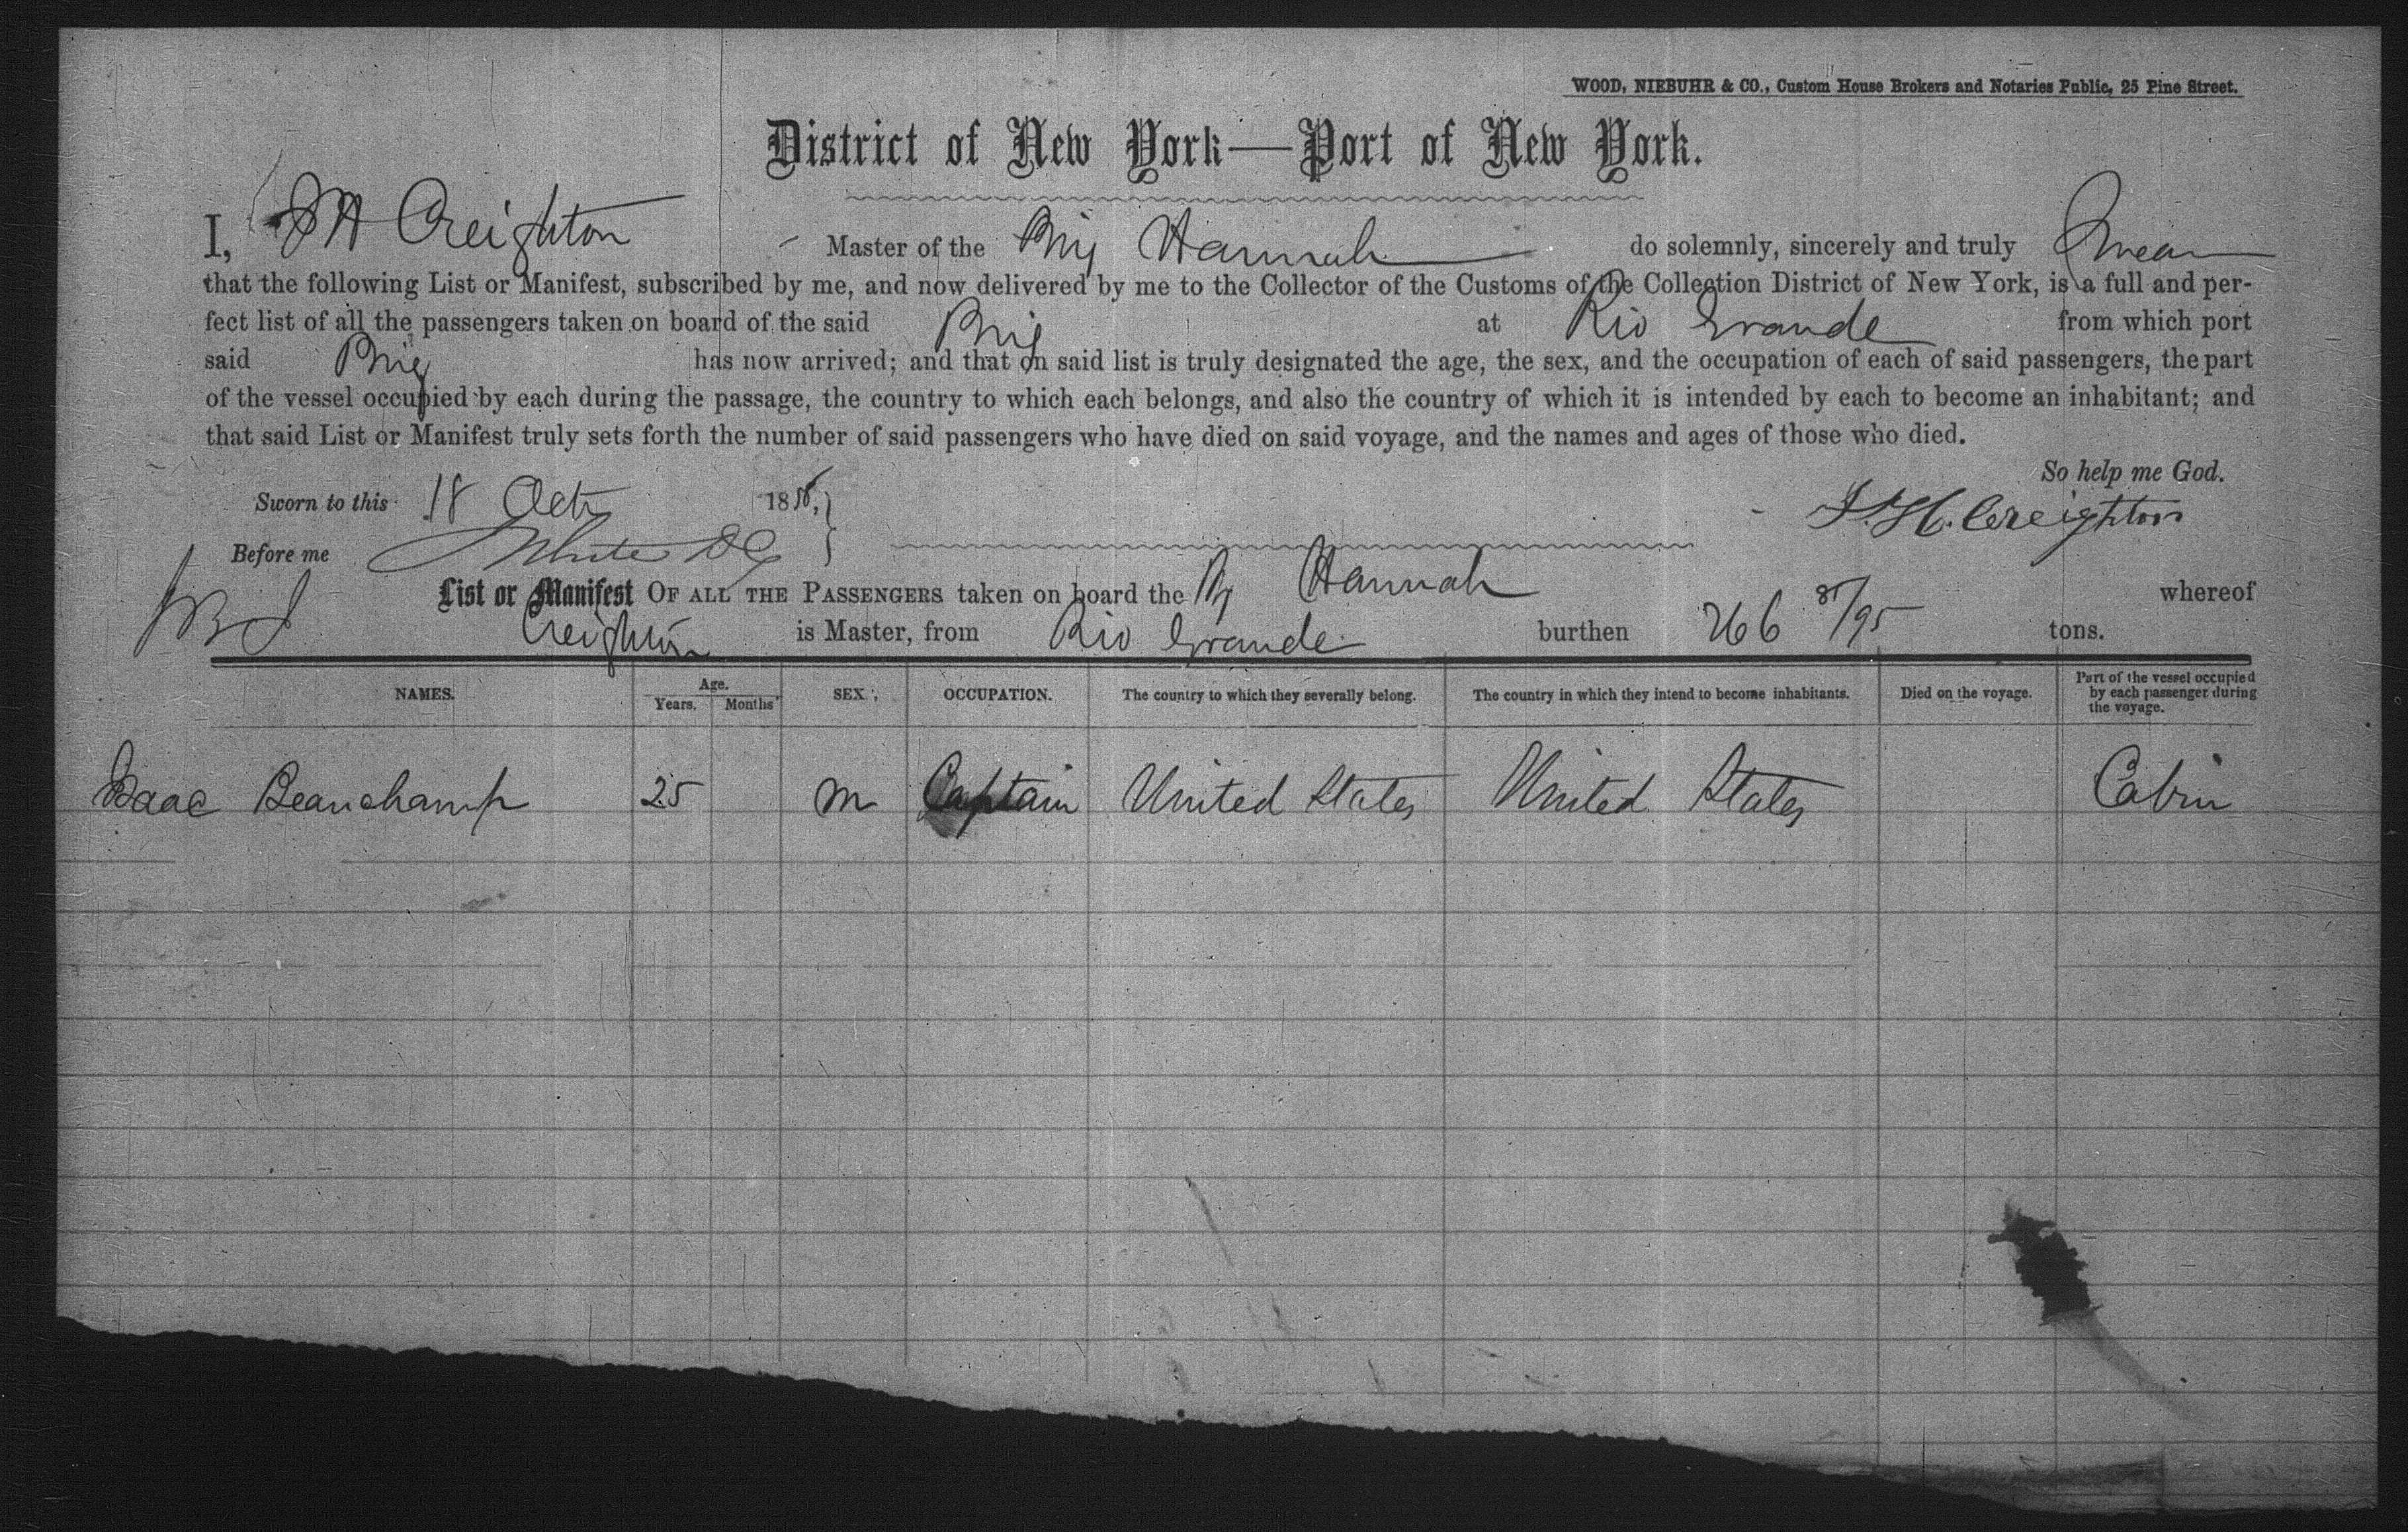 WOOD, NIEBUHR & CO., Custom House Brokers and Notaries Public, 25 Pine Street.
District of New York—Port of New York.
I, J H Creighton Master of the Brig Hannah do solemnly, sincerely and truly Swear
that the following List or Manifest, subscribed by me, and now delivered by me to the Collector of the Customs of the Collection District of New York, is a full and per-
fect list of all the passengers taken on board of the said Brig at Rio Grande from which port
said Brig has now arrived; and that on said list is truly designated the age, the sex, and the occupation of each of said passengers, the part
of the vessel occupied by each during the passage, the country to which each belongs, and also the country of which it is intended by each to become an inhabitant; and
that said List or Manifest truly sets forth the number of said passengers who have died on said voyage, and the names and ages of those who died.
So help me God.
Sworn to this 18 Oct 18 J. H. Creighton
Before me White DC
List or Manifest OF ALL THE PASSENGERS taken on board the Bg Hannah whereof
Creighton is Master, from Rio Grande burthen 266 /95 tons.
NAMES. Age. Years. Months SEX, OCCUPATION. The country to which they severally belong. The country in which they intend to become inhabitants. Died on the voyage. Part of the vessel occupied by each passenger during the voyage.
Isaac Beauchamp 25 m Captain United States United States Cabin